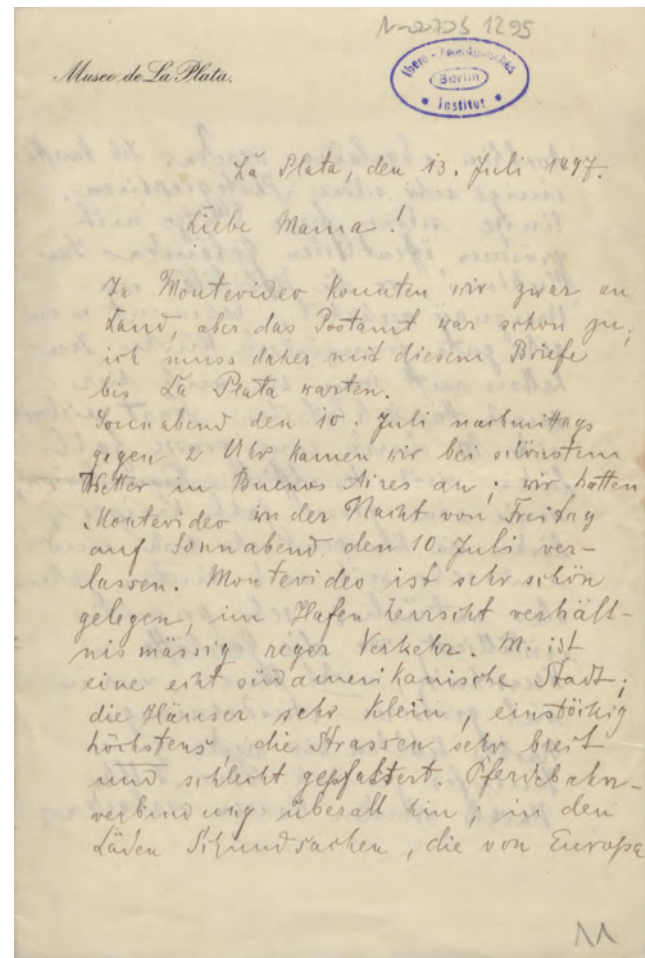 N-2723 b 1295
Museo de La Plata.
Ibero-Amerikanisches
Berlin
Institut
La Plata, den 13. Juli 1897.
Liebe Mama!
In Montevideo konnten wir zwar an
Land, aber das Postamt war schon zu;
ich muss daher mit diesem Briefe
bis La Plata warten.
Sonnabend den 10. Juli nachmittags
gegen 2 Uhr kamen wir bei schönstem
Wetter in Buenos Aires an; wir hatten
Montevideo in der Nacht von Freitag
auf Sonnabend, den 10. Juli ver-
lassen. Montevideo ist sehr schön
gelegen, im Hafen herrscht verhält-
nismässig reger Verkehr. M. ist
eine echt südamerikanische Stadt;
die Häuser sehr klein, einstöckig
höchstens, die Strassen sehr breit
und schlecht gepflastert. Pferdebahn-
verbindung überall hin; in den
Läden Schundsachen, die von Europa